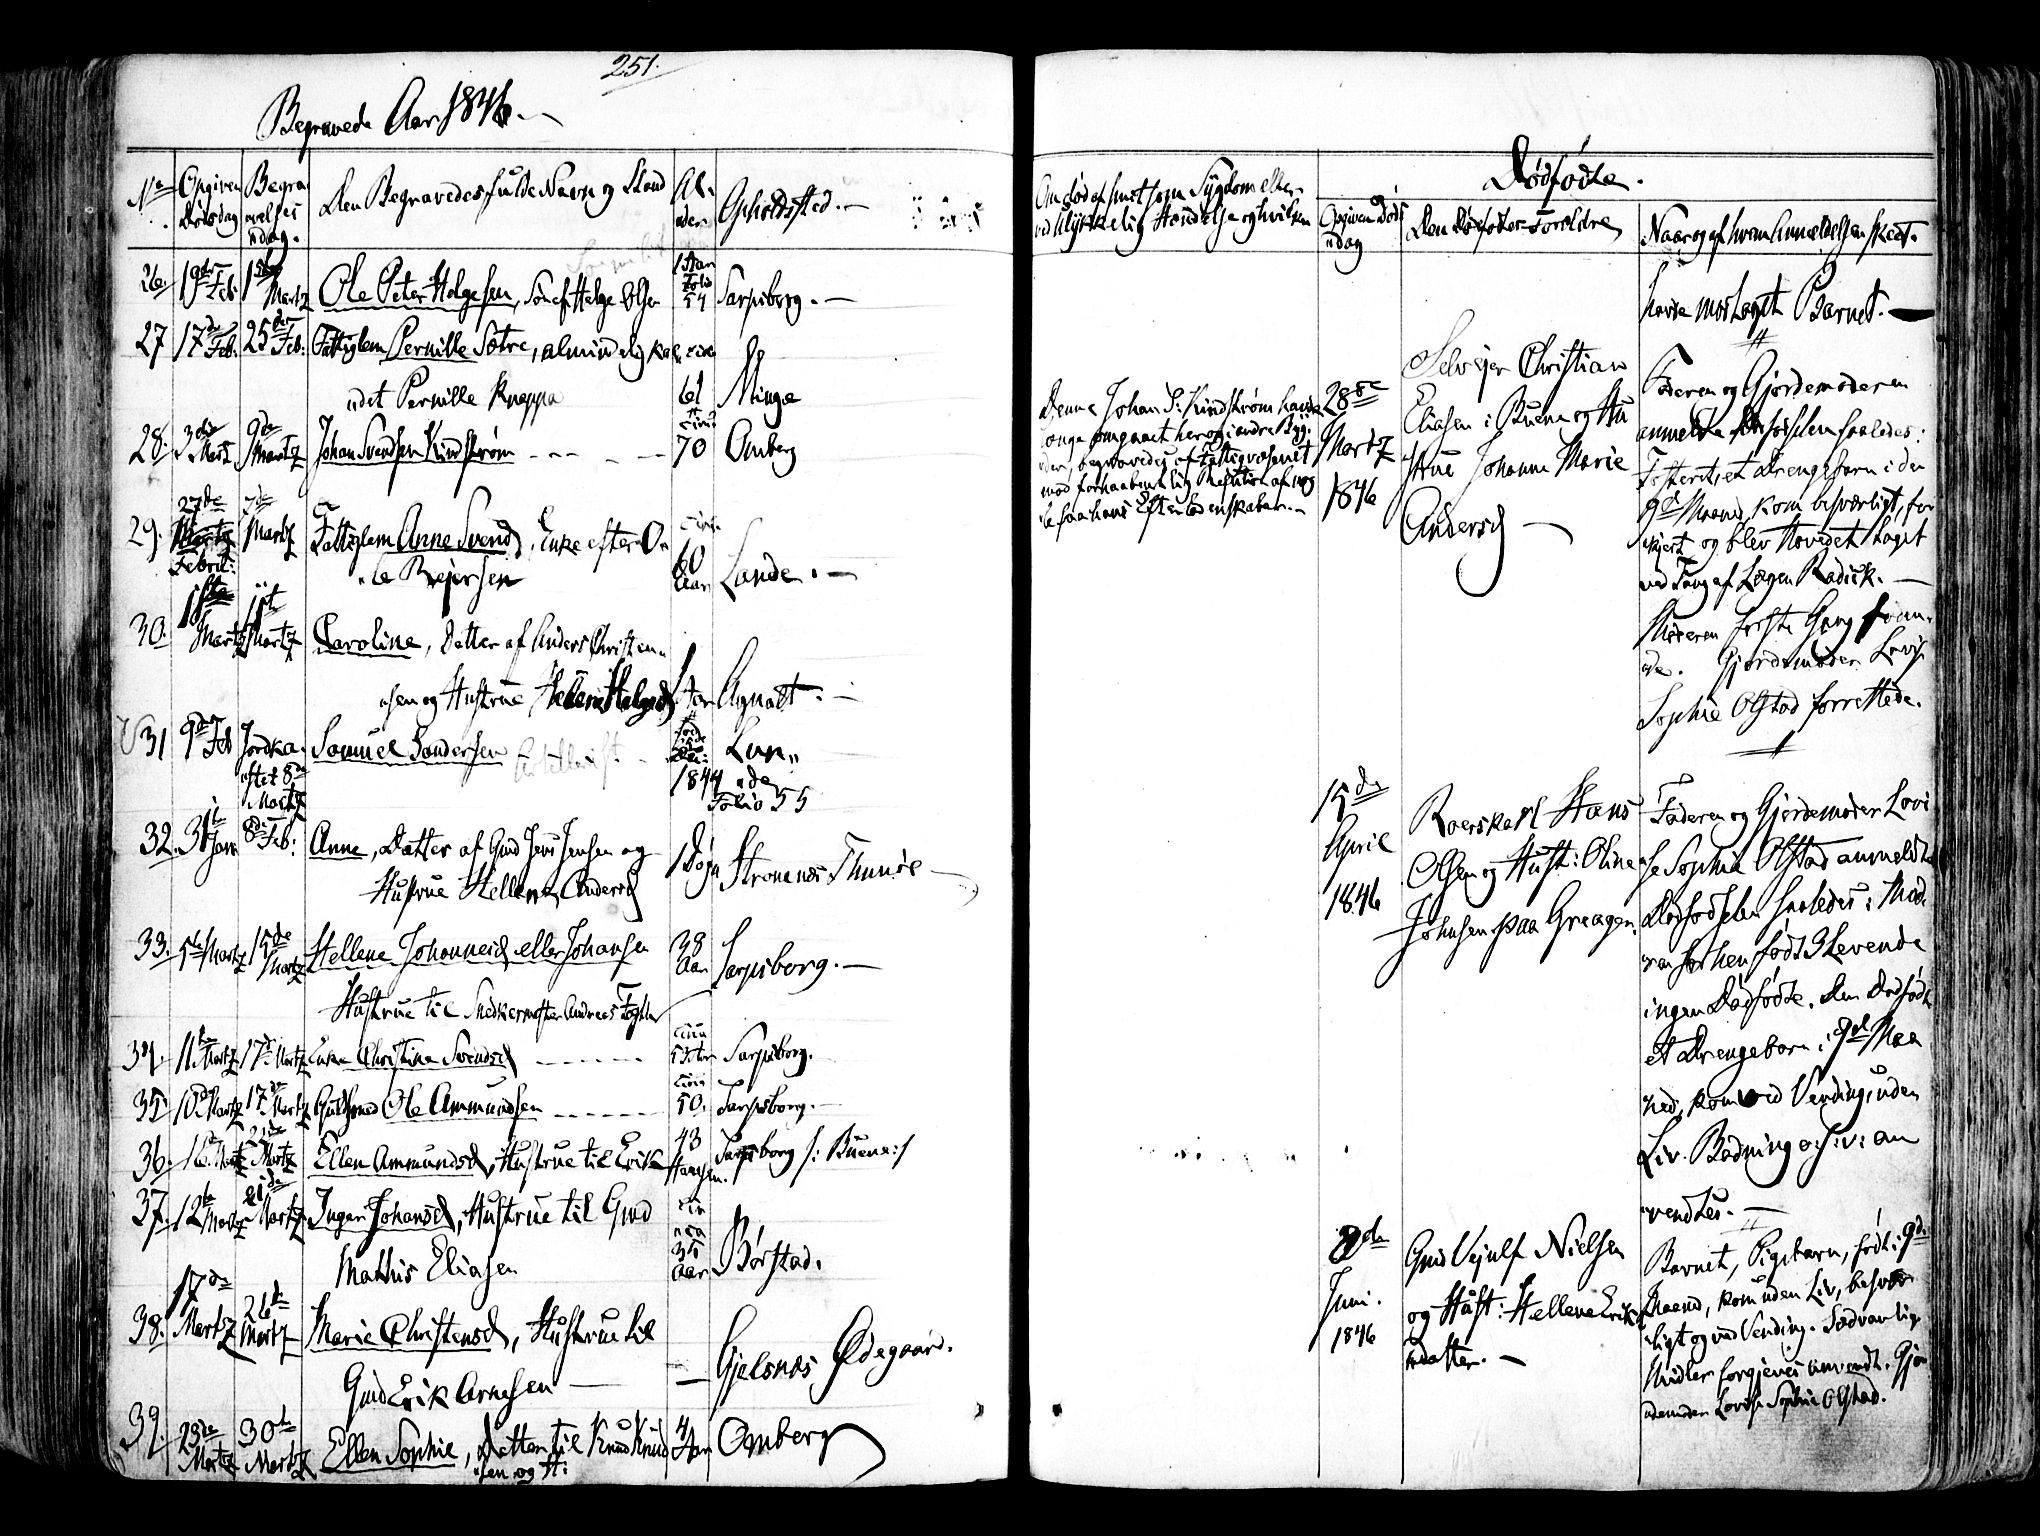 251.
Begravede Aar 1846.
No
Opgiven Dødsdag
Begravelsesdag.
Den Begravedes fulde Navn og Stand
Alder
Opholdssted.
26. 19de Feb. 1ste Martz Ole Peter Helgesen, Søn af Helge Olsen 1 Aar Folio 54 Sarpsborg.
27 17de Feb. 25de Feb: Fattiglem Pernille Sætre, almindelig kal-
det Pernille Knappa 61 Minge
28. 3die Martz 9de Martz Johan Svendsen Kindstrøm 70 Omberg
29. 27de Febru: 7de Martz Fattiglem Anne Svendsd, Enke efter O-
le Rejersen 60 Aar Lande.
30. Martz Martz Caroline, Datter af Anders Christen-
sen og Hustrue Helene Helgesd Aar Agnalt.
31 9de Feb Jordka-
stet 8de Martz Samuel Sandersen 1844 Lan-
de
Folio 55
32. 31t Jan 8de Feb: Anne, Datter af Gmd Jens Jensen og
Hustrue Hellene Andersd 1 Døgn Strømnes Thunøe
33. 5te Martz 15de Martz Hellene Johannesd eller Johansen 38 Aar Sarpsborg.
Hustrue til Snedkermester Andreas
34. 11te Martz 17de Martz Enke Christine Svendsd 53 Aar Sarpsborg.
35 10de Martz 17de Martz Guldsmed Ole Ammundsen 50. Sarpsborg.
36. 16de Martz 21de Martz Ellen Ammundsd, Hustrue til Erik Hansen. 43 Sarpsborg /: Buene :/
37. 12te Martz 21de Martz Inger Johansd, Hustrue til Gmd
Mathis Eliasen cirnea 35 Aar Børstad.
38. 17de Martz 26de Martz Marie Christensd, Hustrue til
Gmd Erik Arnesen Gjelsnæs Ødegaard.
39. 23de Martz 30te Martz Ellen Sophie, Datter til Knud Knud-
sen og H: 4 Aar Omberg
Om død af smitsom Sygdom eller
ved ulykkelig Hændelse og hvilken
Denne Johan S: Kindstrøm havde
længe omgaaet her og i andre Byg-
der, begravedes af Fattigvæsenet
mod forhaabentlig Refusion af nog-
le faa hans Efterladenskaber.
Dødfødte.
Opgiven Døds-
dag
Den Dødfødtes Forældre
Naar og af hvem Anmeldelsen skeet.
havde modtaget Barnet.
28de
Martz
1846
Selvejer Christian
Eliasen i Buene og Hu-
strue Johanne Marie
Andersd
Faderen og Gjordemoderen
anmeldte Fødselen saaledes:
Fosteret, et Drengebarn i den
9de Maaned, kom besværligt, for-
kjert og blev Hovedet taget
ved Tang af Lægen Radick.
Moderen første Gang fødan-
de. Gjordemoder Lovise
Sophie Olstad forrettede.
15de
April
1846
Roerskarl Hans
Olsen og Hust: Oline
Johnsen paa Greagen.
Faderen og Gjordemoder Lovi-
se Sophia Olstad anmeldte
Dødfødselen saaledes: Mod-
ren forhen født 3 Levende
ingen Dødfødte. Den Dødfødte
et Drengebarn i 9de Maa-
ned, kom ved Vending, uden
Liv. Badning o: s: v: an-
vendtes.
2den
Juni.
1846
Gmd Vejulf Nielsen
og Hust: Hellene Eriks-
datter.
Barnet, Pigebarn, født i 9de
Maaned, kom uden Liv, besvær-
ligt og ved Vending. Sædvanlige
Midler forgjeves anvendt. Gjor-
demoder Lovise Sophie Olstad.